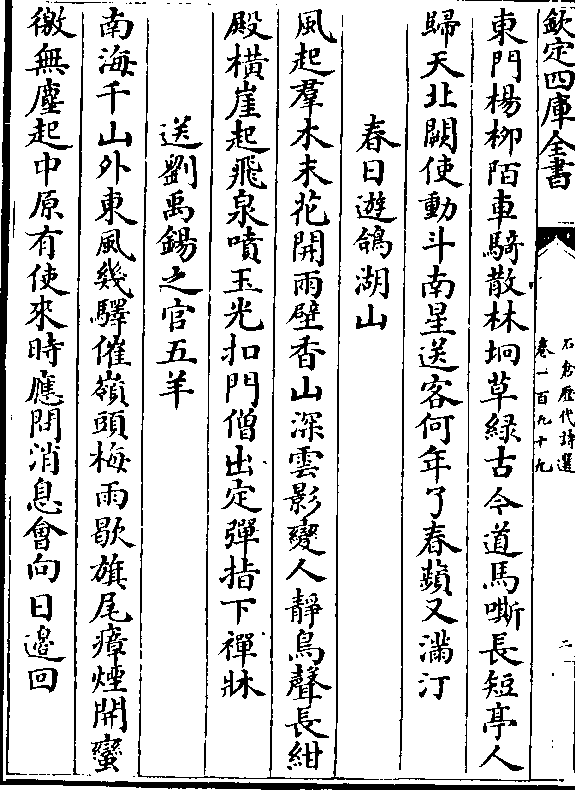 欽定四庫全書
石倉歷代詩選
卷一百九十九
二
東門楊柳陌車騎散林坰草綠古今道馬嘶長短亭人
歸天北闕使動斗南星送客何年了春蘋又滿汀
春日遊鴿湖山
風起羣木末花開雨壁香山深雲影變人靜鳥聲長紺
殿橫崖起飛泉噴玉光扣門僧出定彈指下禪牀
送劉禹錫之官五羊
南海千山外東風幾驛催嶺頭梅雨歇旗尾瘴煙開蠻
徼無塵起中原有使來時應問消息會向日邊回